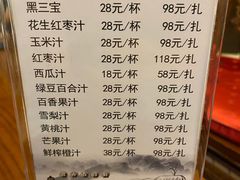 黑三宝 28元/杯 98元/扎
花生红枣汁 28元/杯 98元/扎
玉米汁 28元/杯 98元/扎
红枣汁 28元/杯 118元/扎
西瓜汁 18元/杯 58元/扎
绿豆百合汁 28元/杯 98元/扎
百香果汁 28元/杯 98元/扎
雪梨汁 28元/杯 98元/扎
黄桃汁 28元/杯 98元/扎
芒果汁 28元/杯 98元/扎
鲜榨橙汁 38元/杯 98元/扎